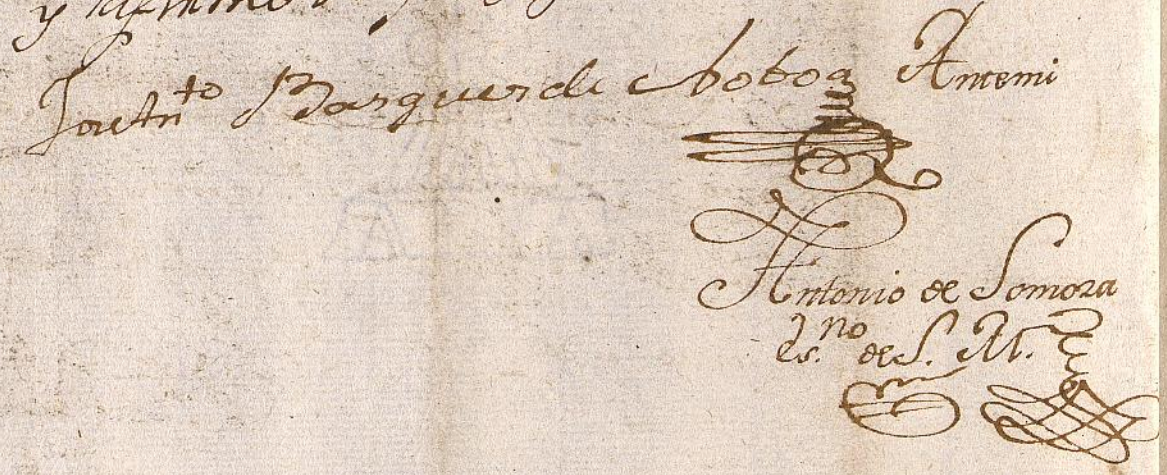 y
Jacin^to Bazquez de Noboa Antemi
Antonio de Somoza
es.^no de S. M.